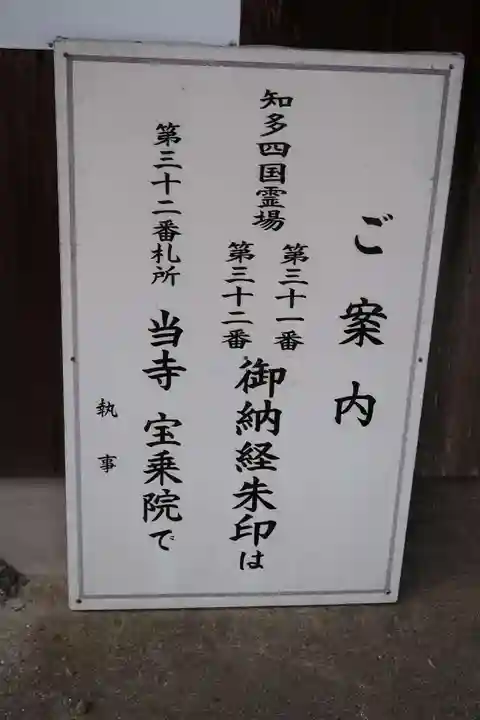 ご案内
知多四国霊場
第三十一番
第三十二番
御納経朱印は
第三十二番札所 当寺 宝乗院で
執事